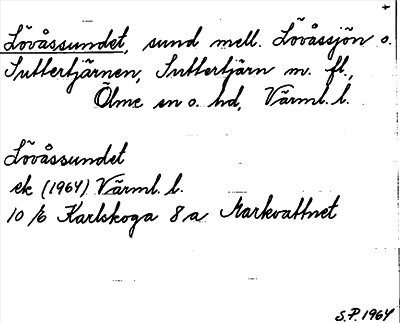 Lövåssundet, sund mell. Lövåssjön o.
Suttertjärnen, Suttertjärn m. fl.,
Ölme sn o. hd, Värml. l.
Lövåssundet
ek (1964) Värml. l.
10/6 Karlskoga 8a Markvattnet
S.P. 1964